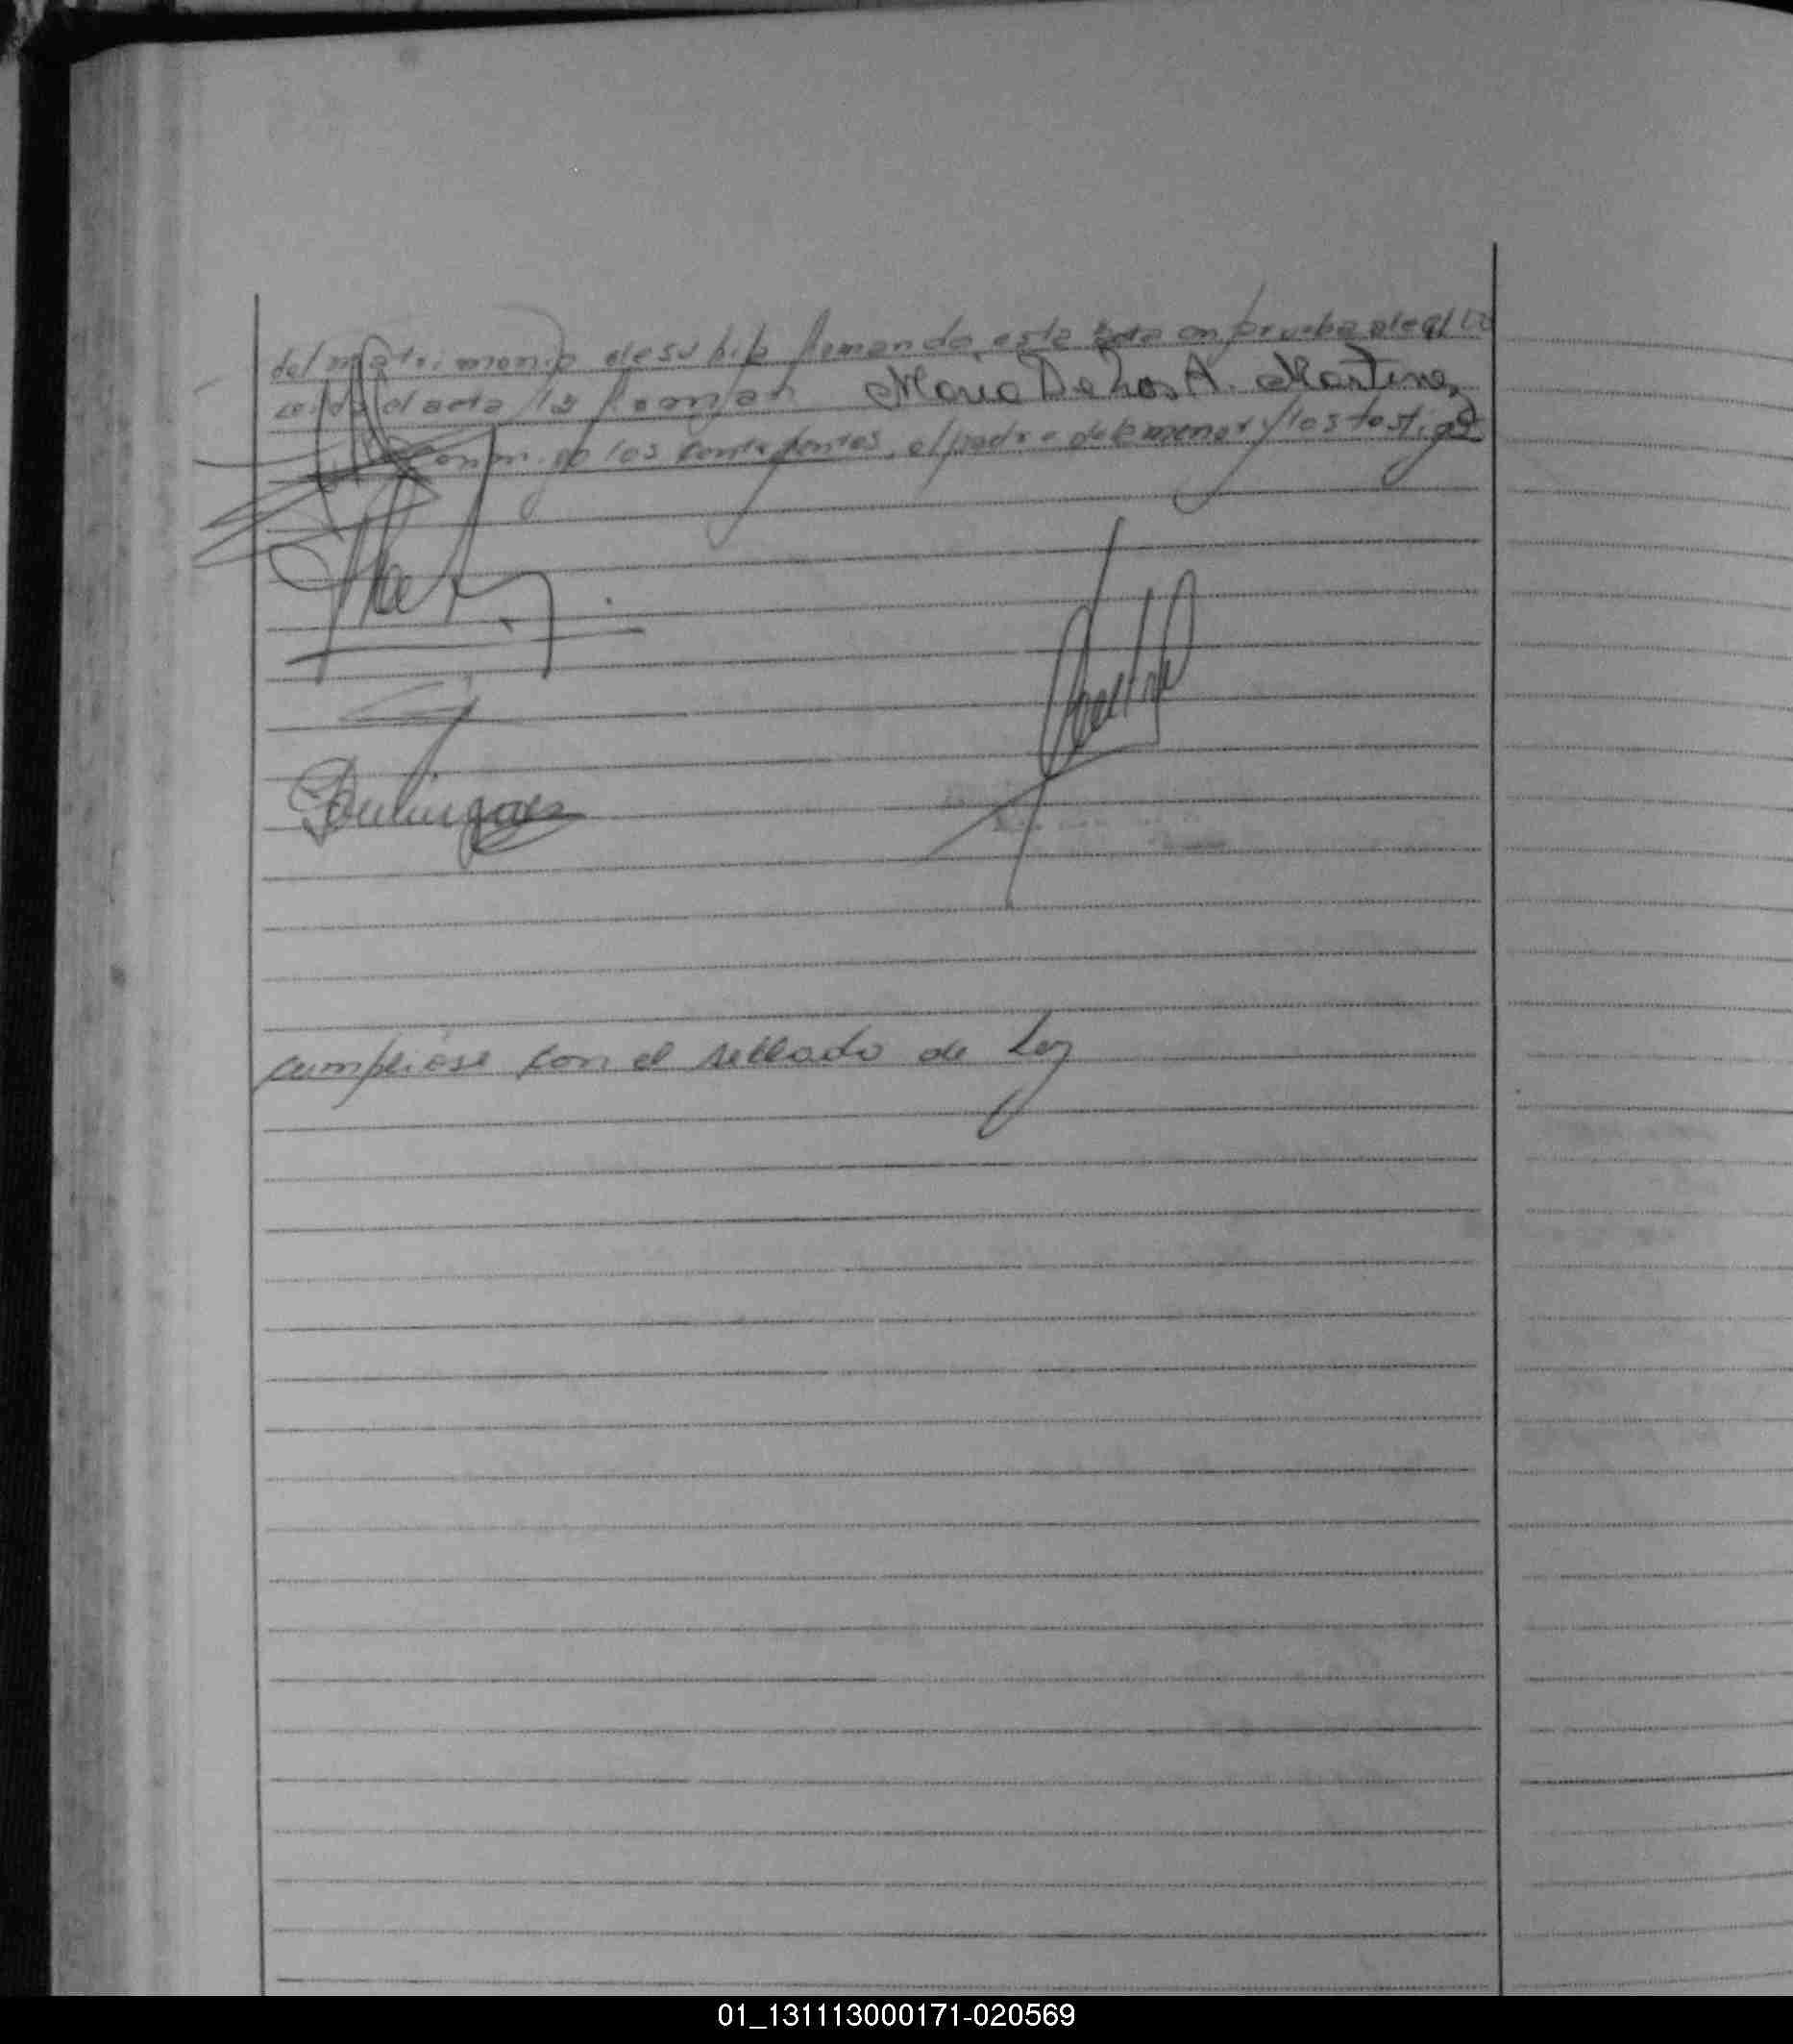 del matrimonio de su hija firmando este acta en prueba de ello
Leida el acta la firman Maria De Los A. Martinez
conmigo los contrayentes, el padre de la menor y los testigos
Dominguez
cumpliose con el sellado de Ley
01_131113000171-020569